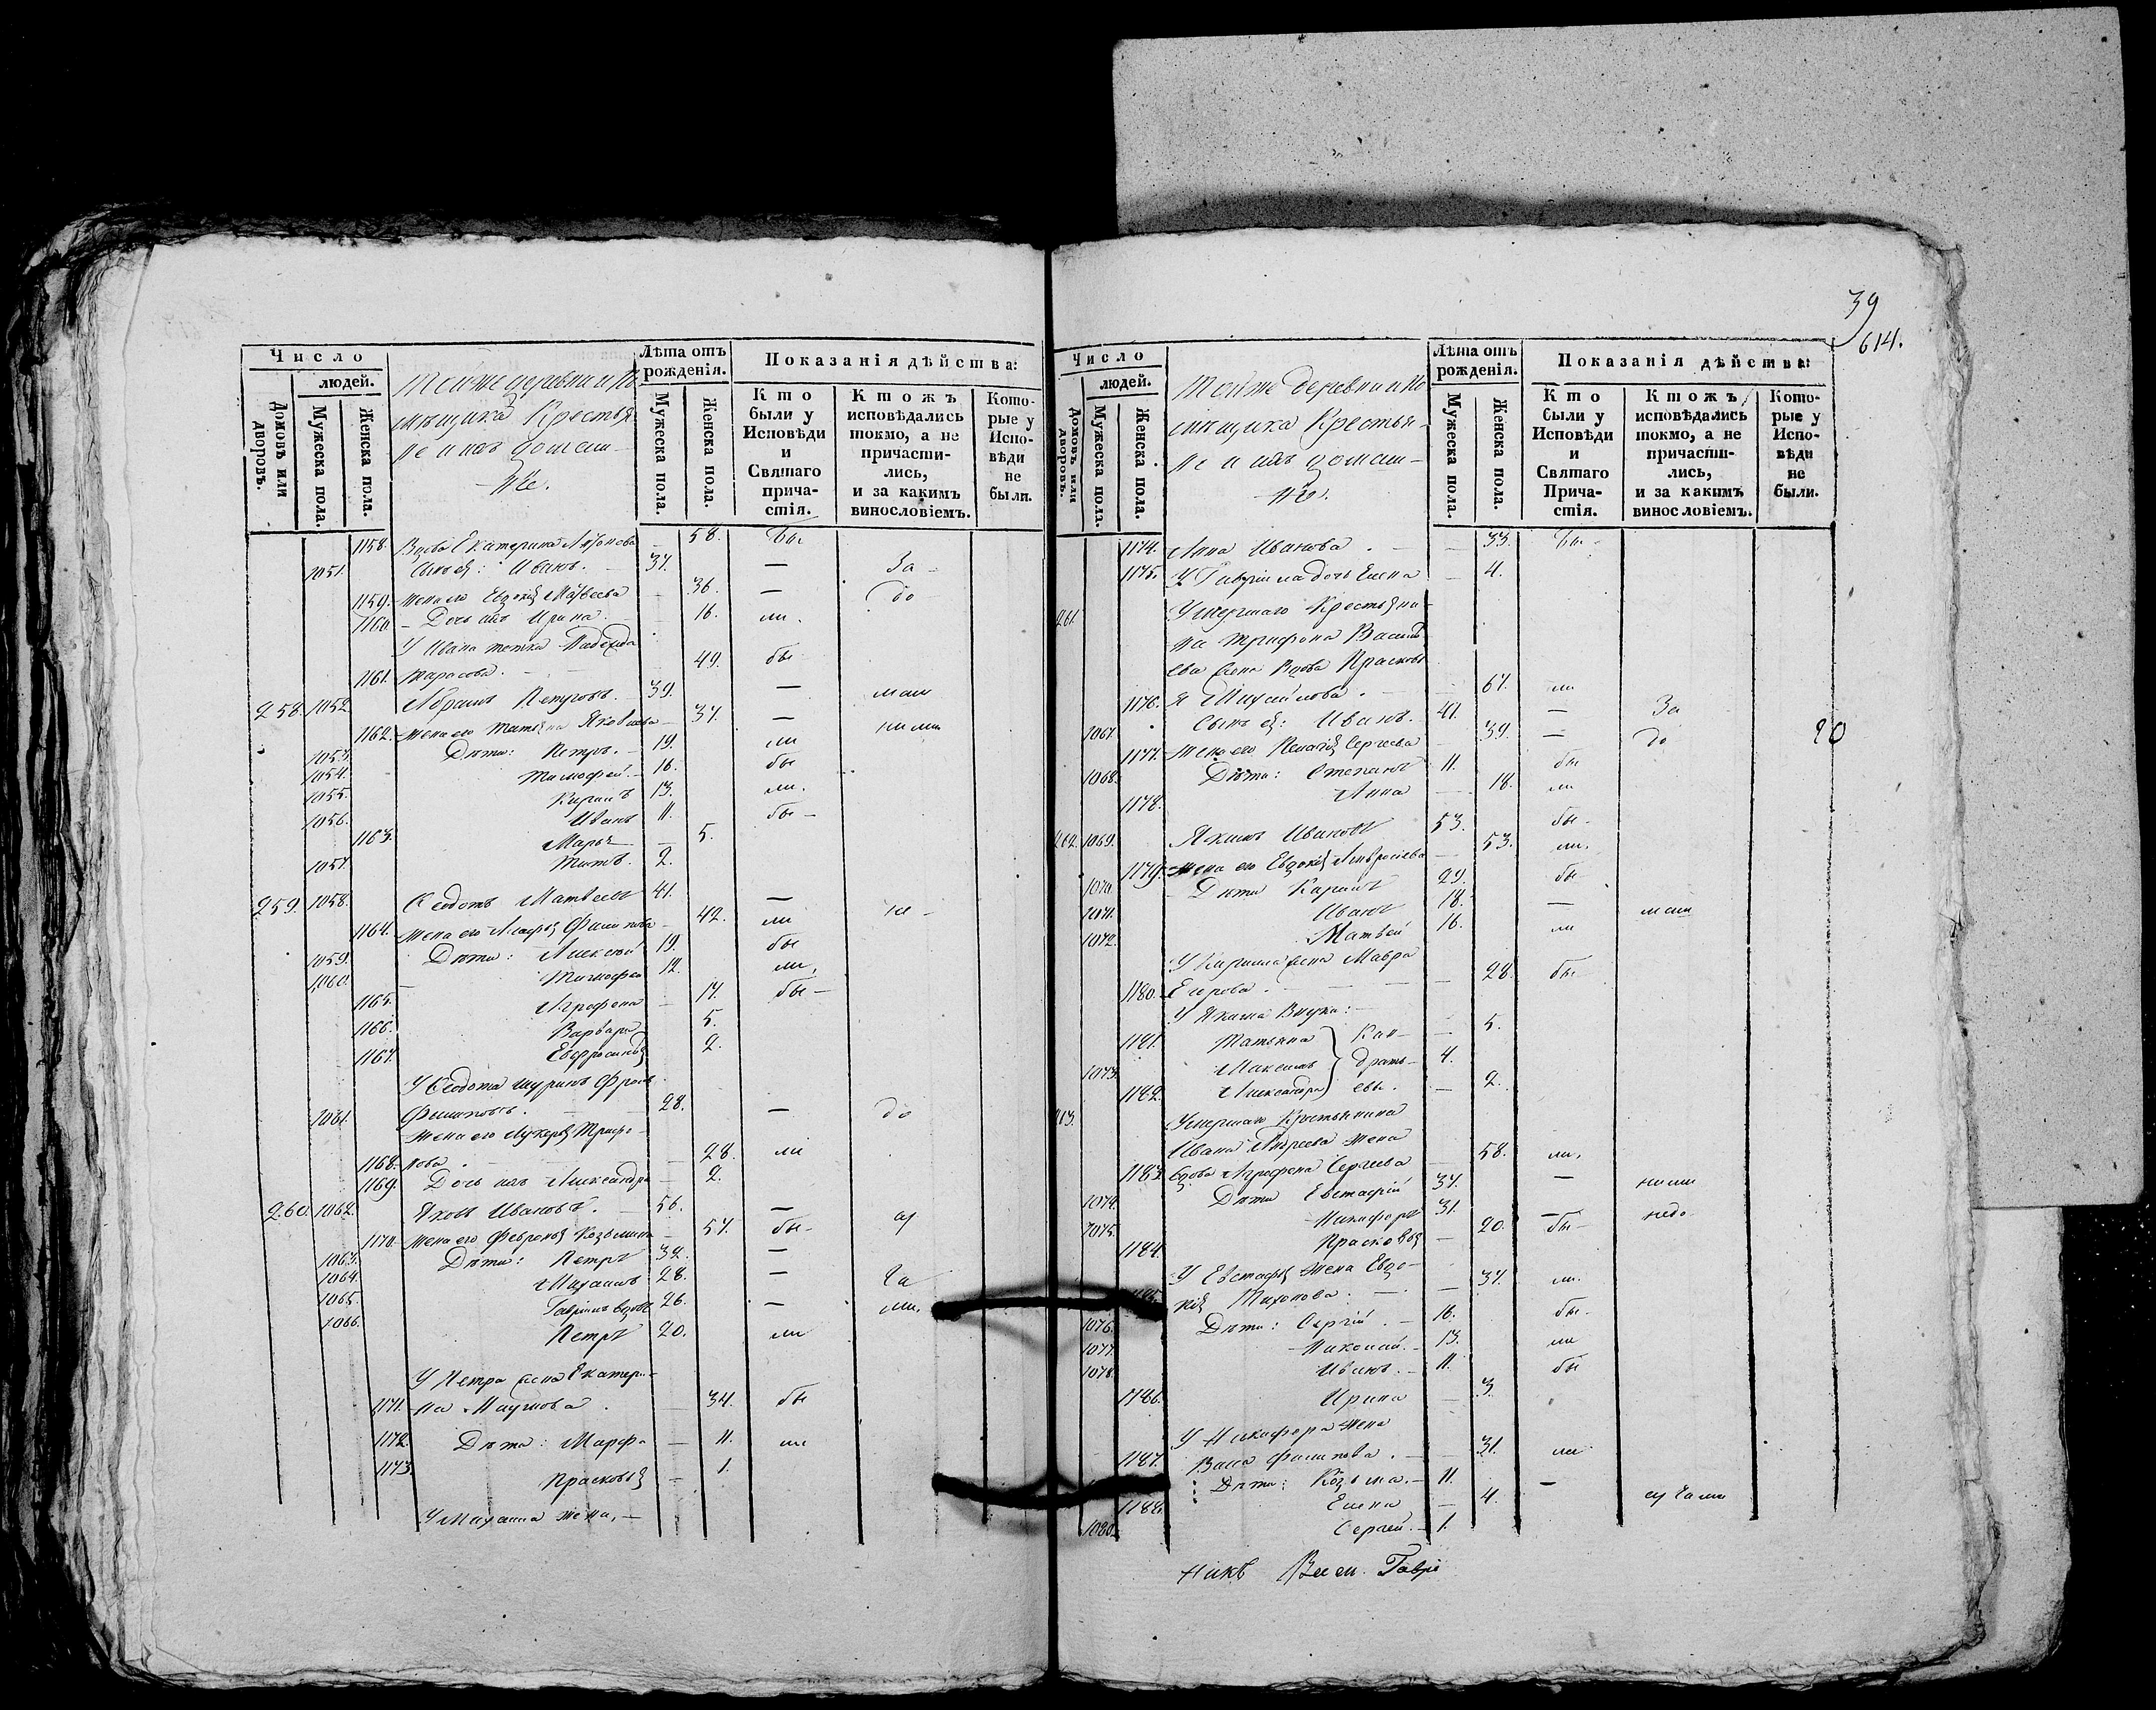 Число
людей.
Домовъ или дворовъ.
Мужеска пола.
Женска пола.
Тойже деревни и по
мѣщика Крестья
не и ихъ домаш-
ніе.
Лѣта отъ рожденія.
Мужеска пола.
Женска пола.
Показанія дѣйства:
Кто были у Исповѣди и Святаго прича-стія.
Ктожъ исповѣдались токмо, а не причасти-лись, и за какимъ винословіемъ.
Кото-рые у Испо-вѣди не были.
1158. Вдова Екатерина - 58. бы
1051. Сынъ ея: Иванъ. 37. — За-
1159. Жена его Евдокія Матвеева - 36. — до
1160. Дочь ихъ Ирина - 16. ли.
У Ивана тетка Надежда
1161. Тарасова. - 49. бы
258. 1052. Абрамъ Петровъ. 39. — маш
1162. Жена его Татьяна Яковлева - 37. — ними
1053. Дѣти: Петръ. 19. ли
1054. Тимофей. 16. бы
1055. Кирилъ 13. ли.
1056. Иванъ 11. бы-
1163. Марья — 5.
1057. Титъ. 2.
259. 1058. Феодотъ Матвеевъ 41. —
1164. Жена его Агафья Филипова - 42. ли не-
1059. Дѣти: Алексѣй 19. бы
1060. Тимофей 12. ли,
1165. Аграфена - 17. бы-
1166. Варвара 5.
1167. Евфросинья 2.
У Феодота шуринъ Фролъ
1061. Филиповъ. 28. — до
Жена его Лукерья Трифо-
1168. нова. - 28. ли
1169. Дочь ихъ Александра - 2.
260. 1062. Яковъ Ивановъ. - 56. —
1170. Жена его Февронья Козьмина - 57. бы- су
1063. Дѣти: Петръ 32. —
1064. Михаилъ 28. — ча
1065. Гавріилъ вдовъ 26. — ли.
1066. Петръ 20. ли
У Петра жена Екатери-
1171. на Наумова. 34. бы
1172. Дѣти: Марфа — 11. ли
1173. Прасковья - 1.
У Михаила жена, —
39
614.
Число
людей.
Домовъ или дворовъ.
Мужеска пола.
Женска пола.
Тойже деревни и по
мѣщика Крестья-
не и ихъ домаш-
ніе.
Лѣта отъ рожденія.
Мужеска пола.
Женска пола.
Показанія дѣйства:
Кто были у Исповѣди и Святаго Прича-стія.
Ктожъ исповѣдались токмо, а не причасти-лись, и за какимъ винословіемъ.
Кото-рые у Испо-вѣди не были.
1174. Анна Иванова. - 33. бы-
1175. У Гавріила дочь Елена - 4.
261. Умершаго Крестьяни-
на Трифона Василь
ева жена вдова Прасковь
1176. я Михайлова. - 67. ли
1067. Сынъ ея: Иванъ. 41. — За
1177. Жена его Пелагея Сергеева - 39. — до
20
1068. Дѣти: Степанъ 11. бы
1178. Анна — 18. ли
262. 1069. Якимъ Ивановъ 53. бы-
1179. Жена его Евдокія Амвросіева - 53. ли.
1070. Дѣти Кирилъ 29. бы
1071. Иванъ 18. — маш
1072. Матвей 16. ли
У Кирилла жена Мавра
1180. Егорова. - 28. бы
У Якима внуки:
1181. Татьяна Кон- - 5.
1073. Максимъ драть- 4.
1182. Александра евы. - 2.
263. Умершаго Крестьянина
Ивана Андреева жена
1183. вдова Аграфена Сергеева 58. ли,
1074. Дѣти Евстафій 37. — ними
1075. Никифоръ 31. — недо
1184. Прасковья - 20. бы-
У Евстафія жена Евдо-
1185. кія Тихонова. - 37. ли.
1076. Дѣти: Сергій. - 16. бы-
1077. Николай. - 13. ли
1078. Иванъ. - 11. бы
1186. Ирина - 3.
У Никифора жена
1187. Васа Филипова. - 31. ли
Дѣти: Козьма. - 11. -
1188. Елена - 4. случаи
1080. Сергей. - 1.
никъ Васил. Гаврі